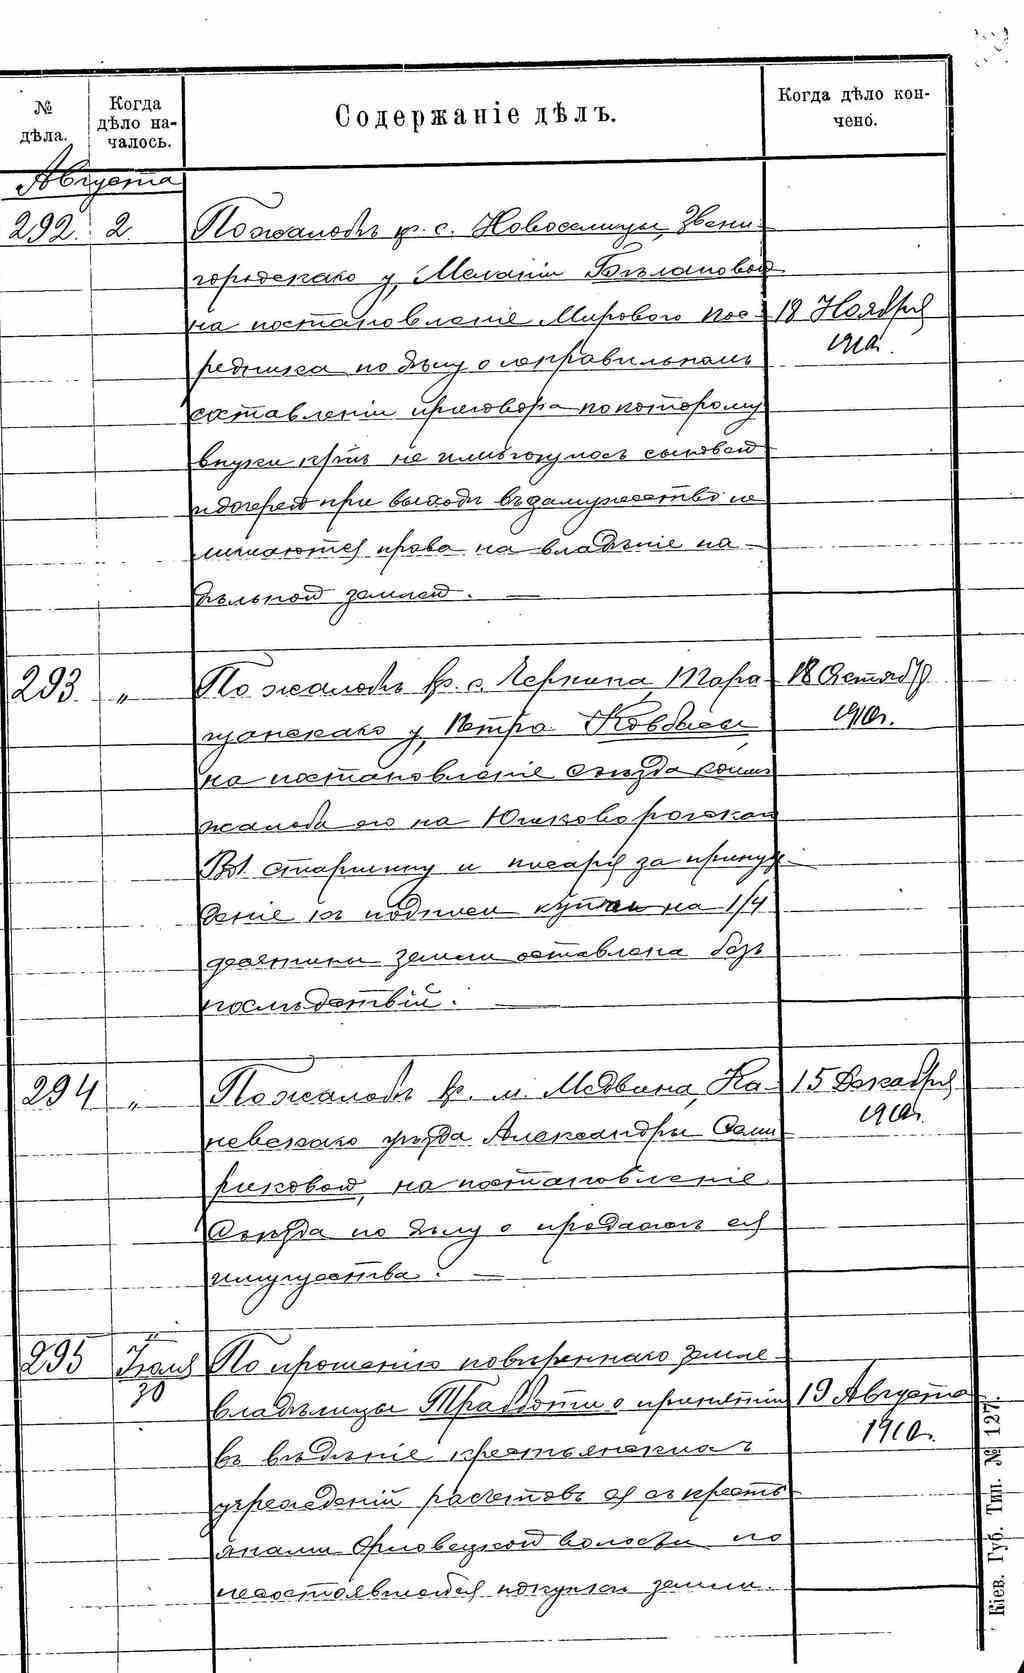 № дѣла.
Когда дѣло на-чалось.
Содержаніе дѣлъ.
Когда дѣло кон-чено.
Августа
292. 2.
По жалобѣ кр. с. Новоселицы, Звени-
городскаго у, Меланіи Бѣлановой
на постановленіе Мирового Пос-
18 Ноября
1910г.
редника по дѣлу о неправильномъ
составленіи приговора по которому
внуки
при выходѣ въ замужество не
лишаются права на владѣніе на-
дѣльной землей. —
293. „
По жалобѣ кр. с. Чернина, Тара-
18 Октября
щанскаго у, Петра Ковбасы
1910г.
на постановленіе съѣзда коимъ
жалоба его на Юшковорогскаго
Вол. старшину и писаря за принуж-
деніе къ подписи купчей на 1/4
десятины земли оставлена безъ
послѣдствій. —
294 „
По жалобѣ кр. м. Медвина, Ка-
15 Декабря
1910г.
невскаго уѣзда Александры Семи-
риковой, на постановленіе
Съѣзда по дѣлу о продажѣ ея
имущества. —
295 „ Іюля 30
По прошенію повѣреннаго земле-
владѣлицы Трабботи о принятіи
19 Августа
1910г.
въ вѣдѣніе крестьянскихъ
учрежденій расчетовъ ея съ кресть
янами Орловецкой волости по
несостоявшейся покупкѣ земли.
Кіев. Губ. Тип. № 127.